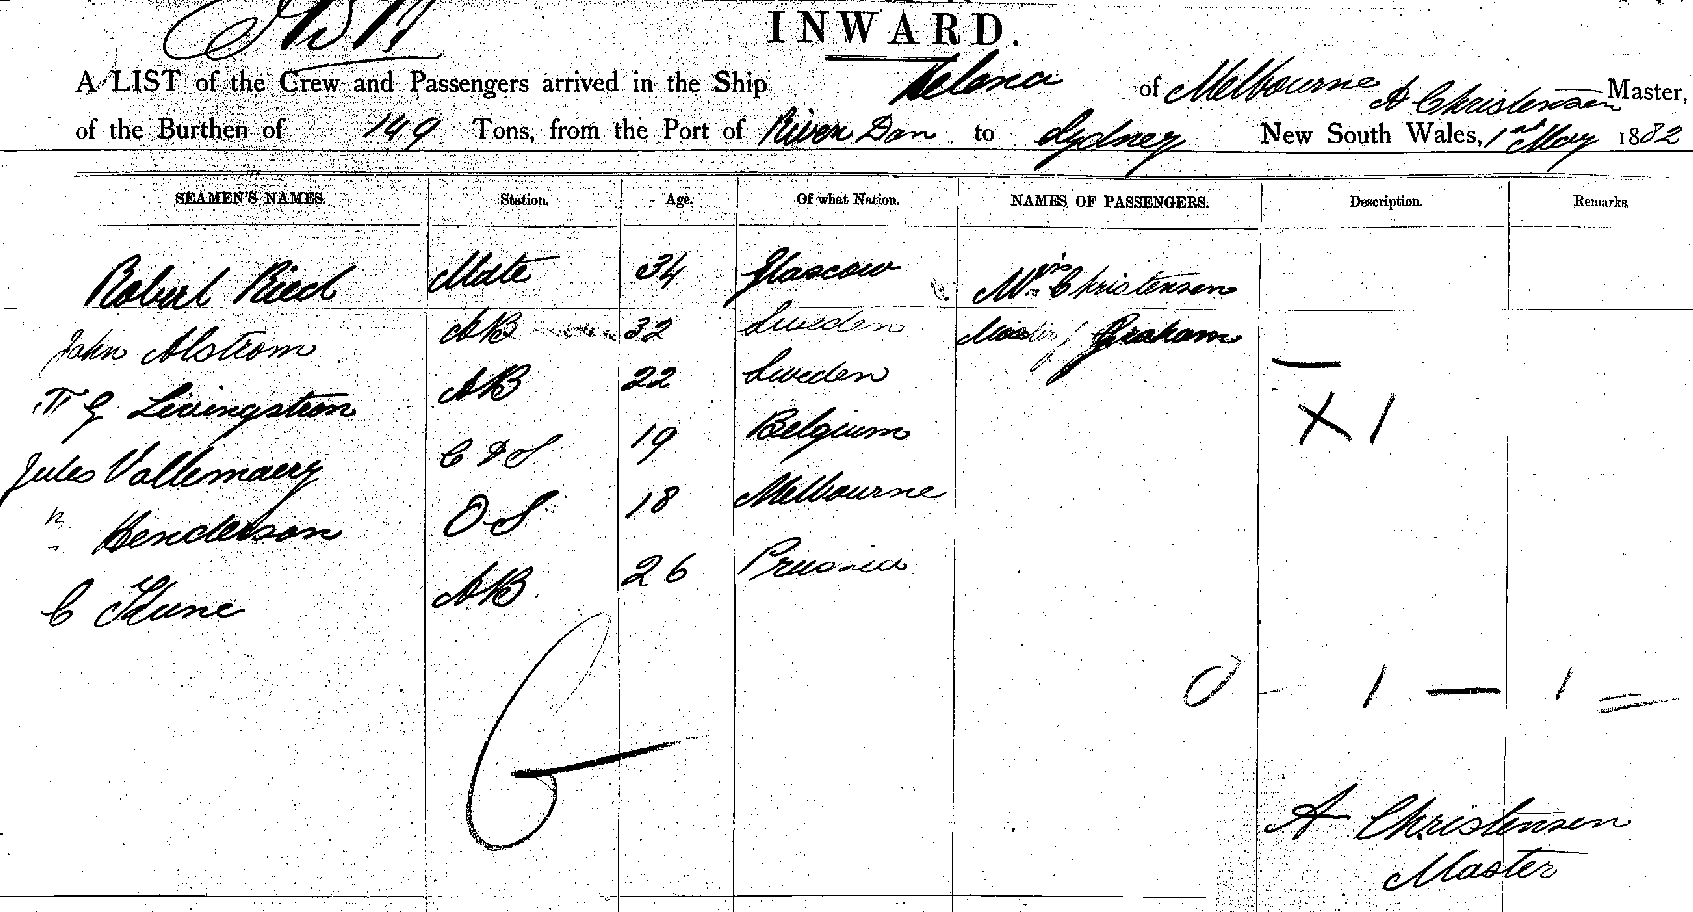 INWARD.
A LIST of the Crew and Passengers arrived in the Ship Helena of Melbourne A Christensen Master,
of the Burthen of 149 Tons, from the Port of River Don to Sydney New South Wales, 1st May 1882
SEAMEN'S NAMES. Station. Age. Of what Nation. NAMES OF PASSENGERS. Description. Remarks
Robert Ried Mate 34 Glascow Mrs Christensen
John Alstrom AB 32 Sweden Graham
G Livingstron AB 22 Sweden —
X 1
Jules Vallemaery C & S 19 Belgium
Henderson O S 18 Melbourne
C Kune AB. 26 Prussia
0 - 1 — 1 =
6
A Christensen
Master